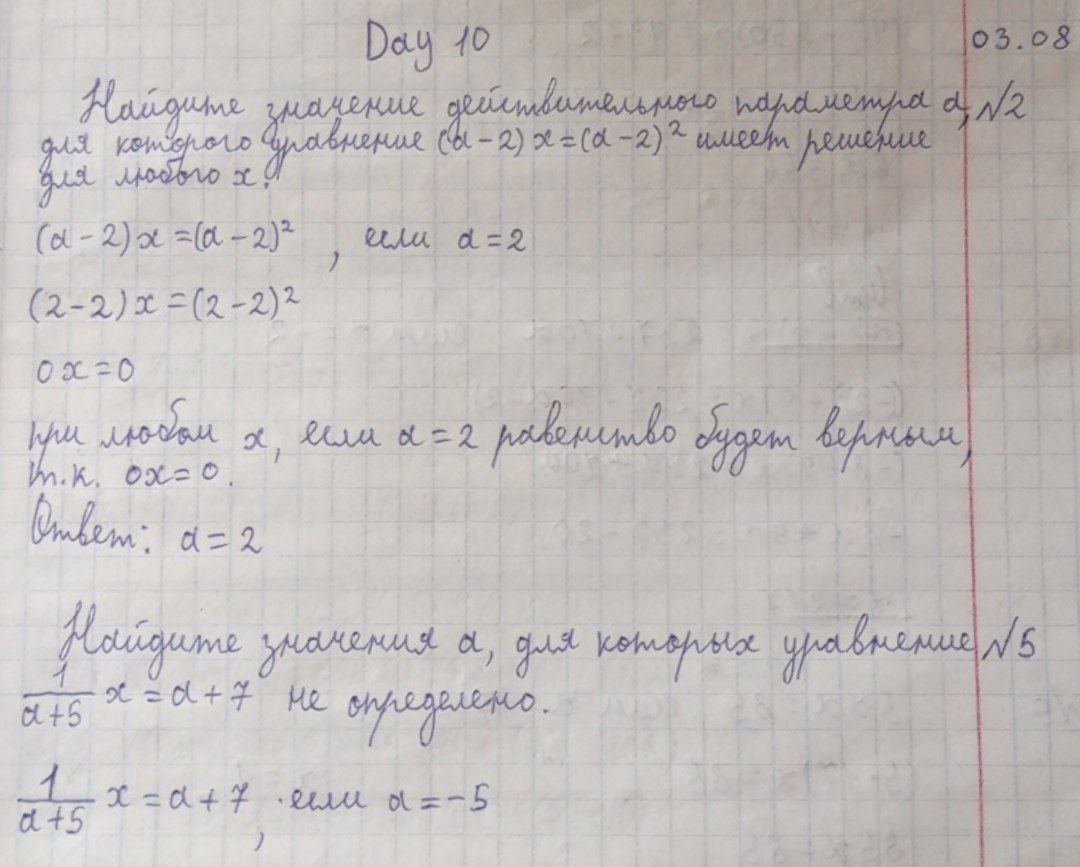 Day 10
03.08
Найдите значение действительного параметра a, №2
для которого уравнение (a-2)x=(a-2)² имеет решение
для любого x.
(a-2)x=(a-2)², если a=2
(2-2)x=(2-2)²
0x=0
при любом x, если a=2 равенство будет верным,
т.к. 0x=0.
Ответ: a=2
Найдите значения a, для которых уравнение №5
1/(a+5) x=a+7 не определено.
1/(a+5) x=a+7, если a=-5